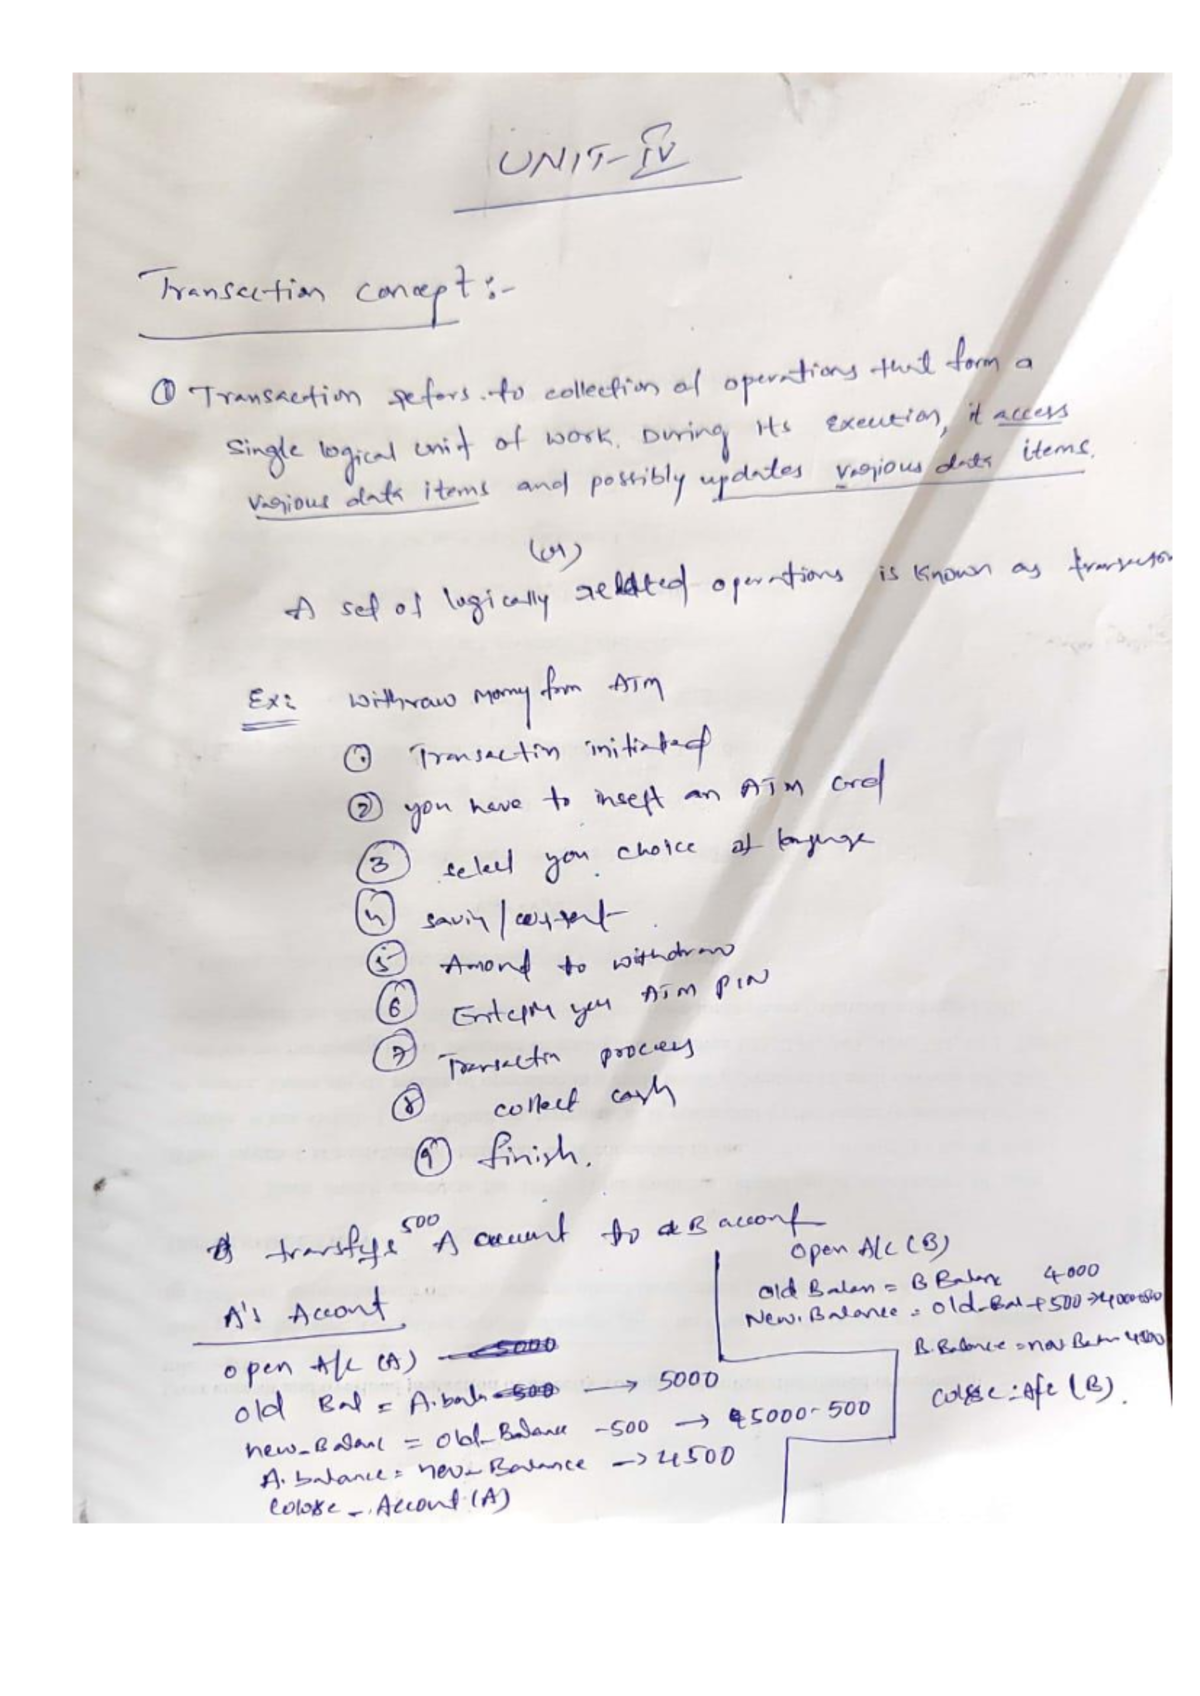 UNIT-IV
Transaction concept :-
① Transaction refers to collection of operations that form a
single logical unit of work. During its execution, it access
various data items and possibly updates various data items.
(or)
A set of logically related operations is known as transaction
Ex: withraw money from ATM
① Transactin initiated
② you have to insert an ATM card
③ select you choice of language
④ savin / current
⑤ Amond to withdraw
⑥ Enterin your ATM PIN
⑦ Transactin process
⑧ collect cash
⑨ finish.
transfer 500 A account to B account
A's Accont
open A/c (A)
old Bal = A. → 5000
new_Balanc = old_Balance -500 → 5000-500
A. balance = new_Balance → 4500
Accont (A)
open A/c (B)
old Balan = B Balanc 4000
New. Balance = old_Bal + 500 →
B. Balance =
A/c (B).